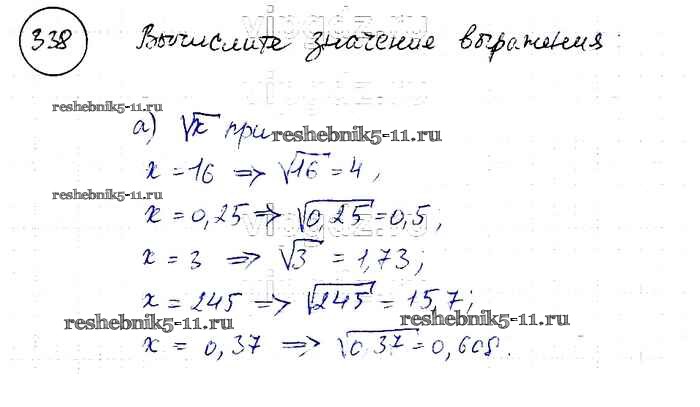 338 Вычислите значение выражения:
reshebnik5-11.ru
а) √x при
reshebnik5-11.ru
x = 16 => √16 = 4,
reshebnik5-11.ru
x = 0,25 => √0,25 = 0,5;
x = 3 => √3 = 1,73;
x = 245 => √245 = 15,7;
reshebnik5-11.ru
reshebnik5-11.ru
x = 0,37 => √0,37 = 0,608.